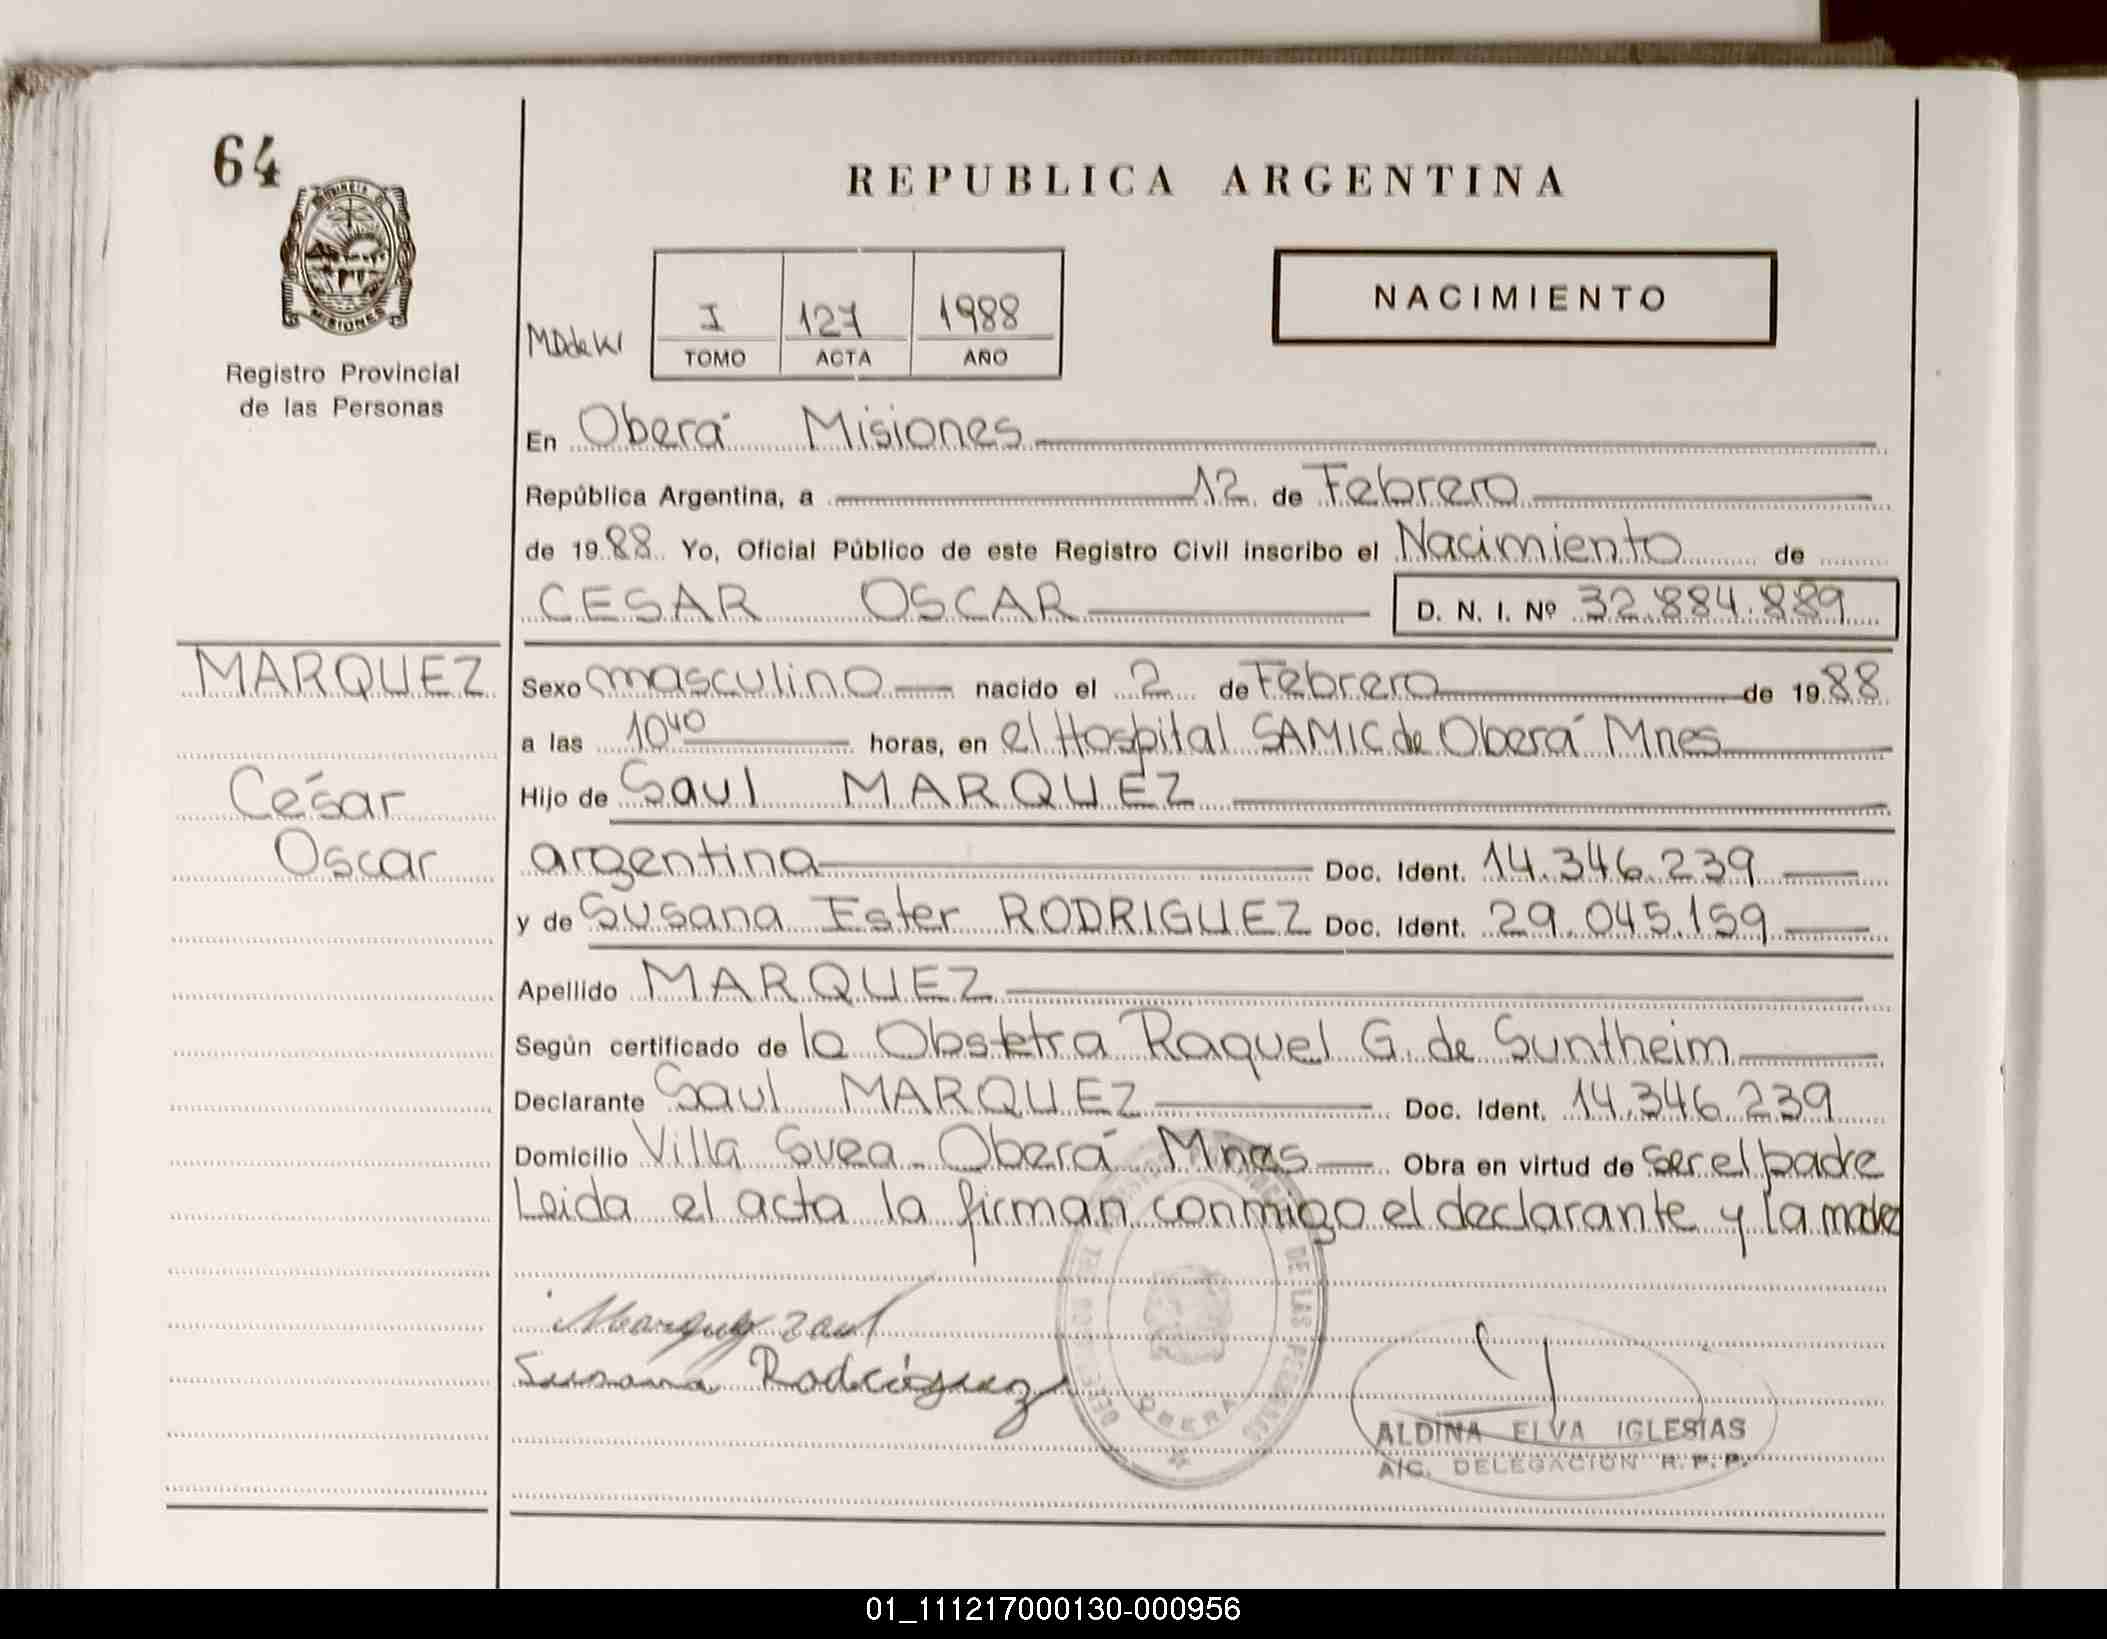 64
REPUBLICA ARGENTINA
NACIMIENTO
I 127 1988
TOMO ACTA AÑO
MISIONES
Registro Provincial
de las Personas
En Oberá Misiones
República Argentina, a 12 de Febrero
de 1988 Yo, Oficial Público de este Registro Civil inscribo el Nacimiento de
CESAR OSCAR D. N. I. Nº 32.884.889
MARQUEZ
César
Oscar
Sexo masculino nacido el 2 de Febrero de 1988
a las 10⁴⁰ horas, en el Hospital SAMIC de Oberá Mnes
Hijo de Saul MARQUEZ
argentina Doc. Ident. 14.346.239
y de Susana Ester RODRIGUEZ Doc. Ident. 29.045.159
Apellido MARQUEZ
Según certificado de la Obstetra Raquel G. de Suntheim
Declarante Saul MARQUEZ Doc. Ident. 14.346.239
Domicilio Villa Svea - Oberá Mnes Obra en virtud de ser el padre
Leida el acta la firman conmigo el declarante y la madre
Marquez Saul
Susana Rodríguez
DE LAS PERSONAS
OBERA
ALDINA ELVA IGLESIAS
A/C. DELEGACION R.P.P.
01_111217000130-000956